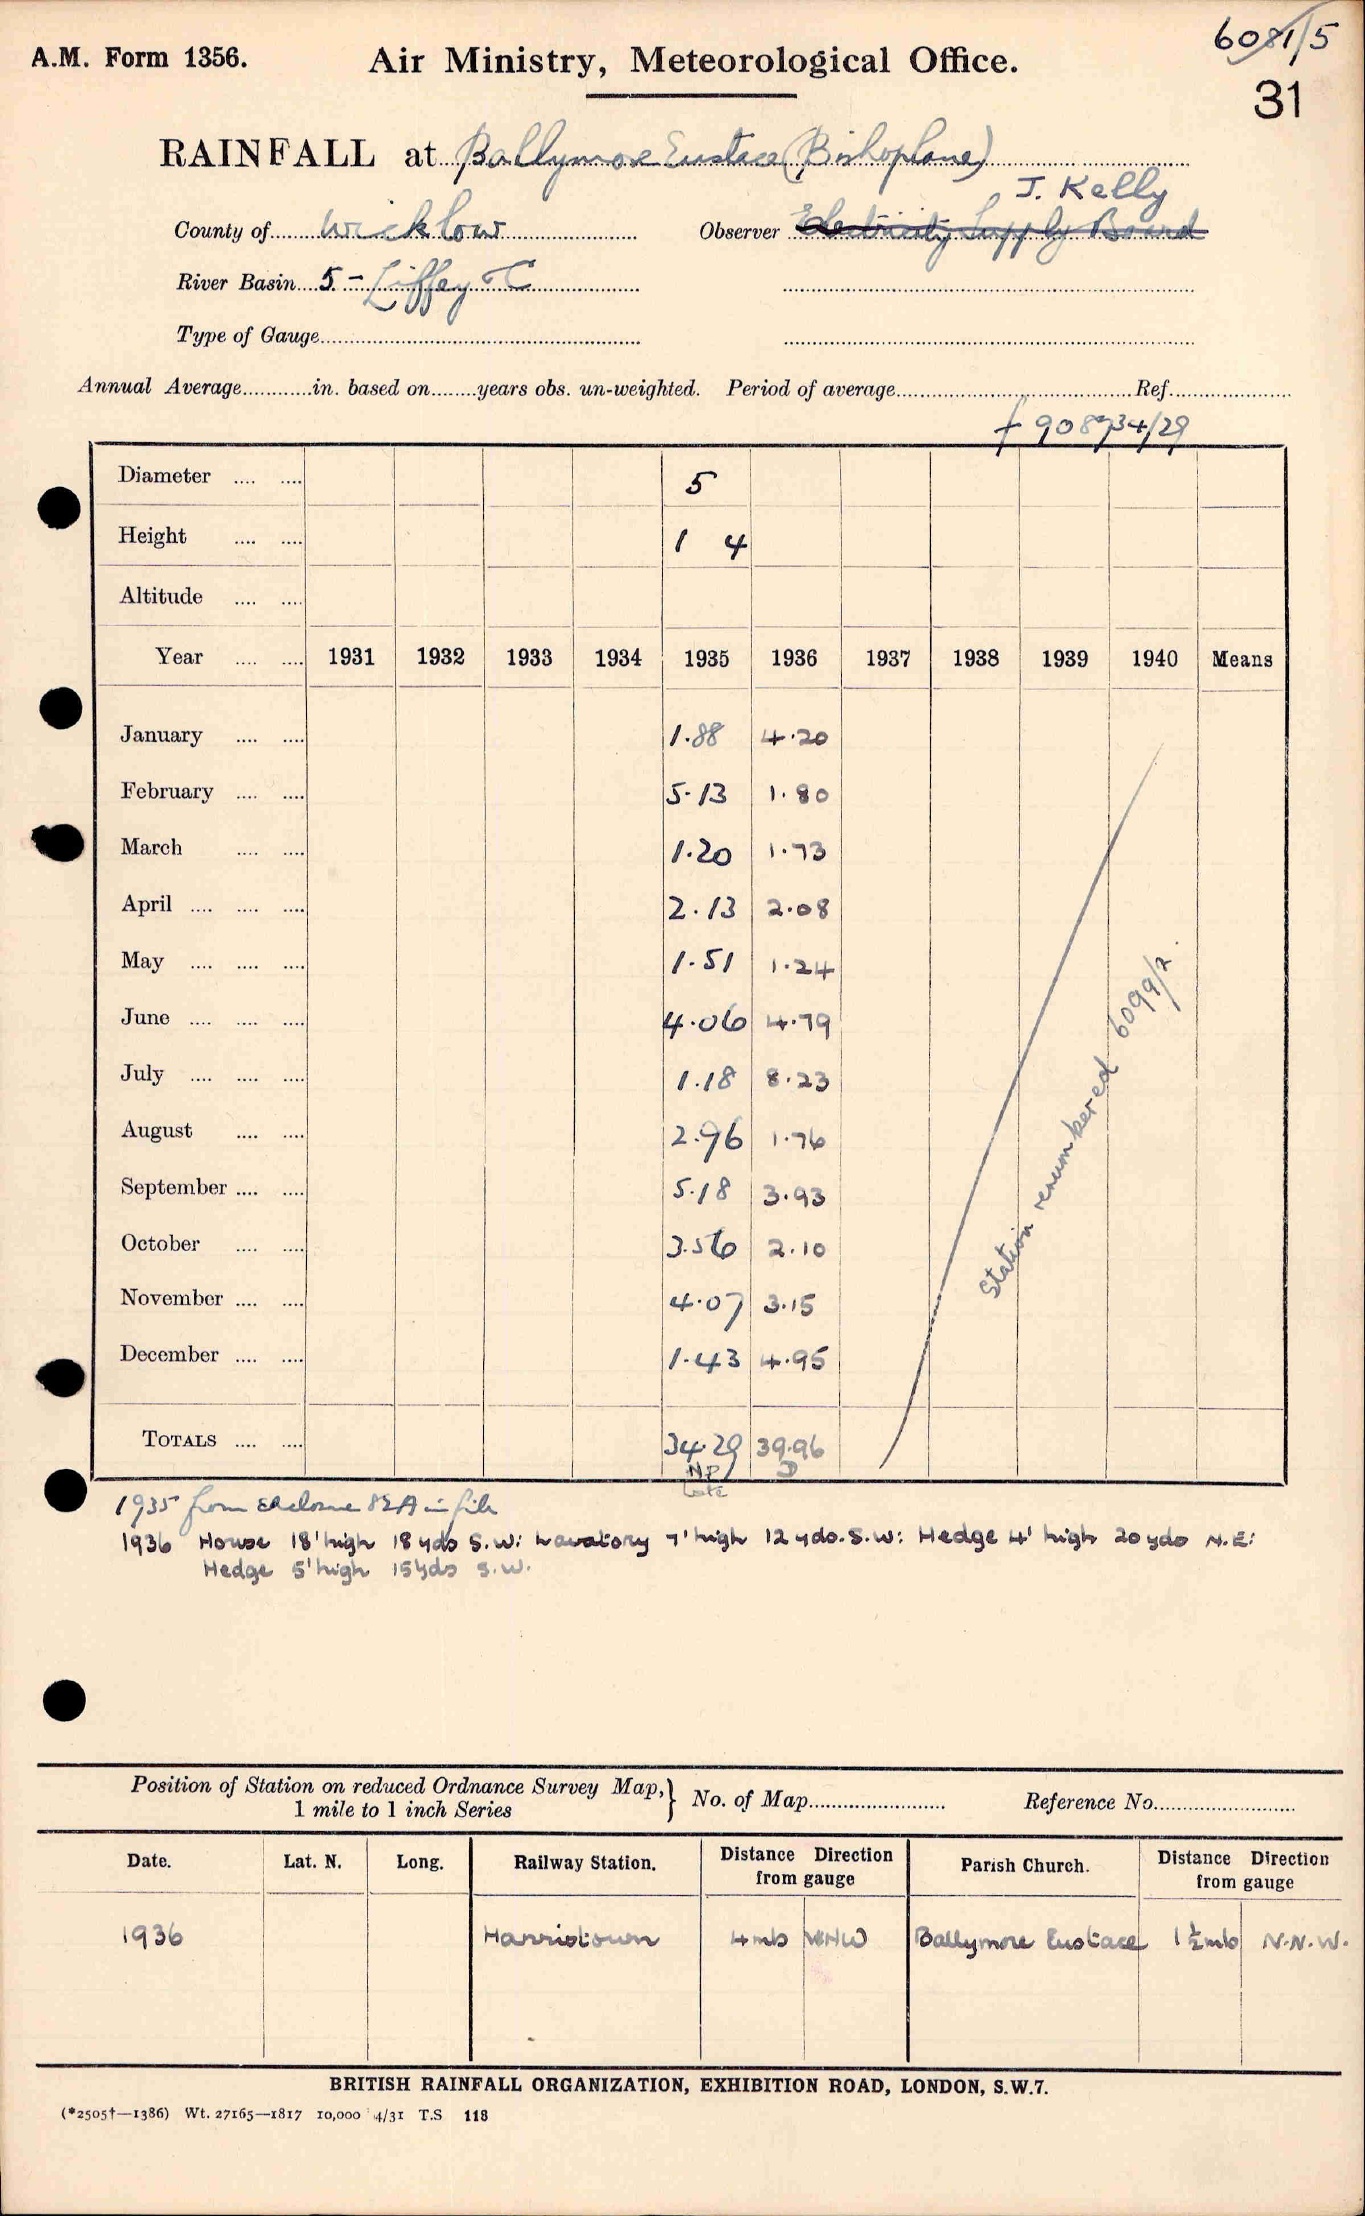 A.M. Form 1356. Air Ministry, Meteorological Office. 6081/5
31
RAINFALL at Ballymore Eustace (Bishoplane)
J. Kelly
County of wicklow Observer Electricity Supply Board
River Basin 5 - Liffey
Type of Gauge
Annual Average in. based on years obs. un-weighted. Period of average Ref.
34/29
Diameter 5
Height 1 4
Altitude
Year 1931 1932 1933 1934 1935 1936 1937 1938 1939 1940 Means
January 1.88 4.20
February 5.13 1.80
March 1.20 1.73
April 2.13 2.08
May 1.51 1.24
June 4.06 4.79
July 1.18 8.23
August 2.96 1.76
September 5.18 3.93
October 3.56 2.10
November 4.07 3.15
December 1.43 4.95
Station renumbered 6099/2.
TOTALS 34.29 39.96
NP D
Late
1935 from in file
1936 House 18' high 18 yds S.W: Lavatory 7' high 12 yds. S.W: Hedge 4' high 20 yds N.E:
Hedge 5' high 15 yds S.W.
Position of Station on reduced Ordnance Survey Map,
1 mile to 1 inch Series } No. of Map Reference No.
Date. Lat. N. Long. Railway Station. Distance Direction from gauge Parish Church. Distance Direction from gauge
1936 Harristown 4 mls WNW Ballymore Eustace 1½ mls N.N.W.
BRITISH RAINFALL ORGANIZATION, EXHIBITION ROAD, LONDON, S.W.7.
(*2505†—1386) Wt. 27165—1817 10,000 4/31 T.S 118